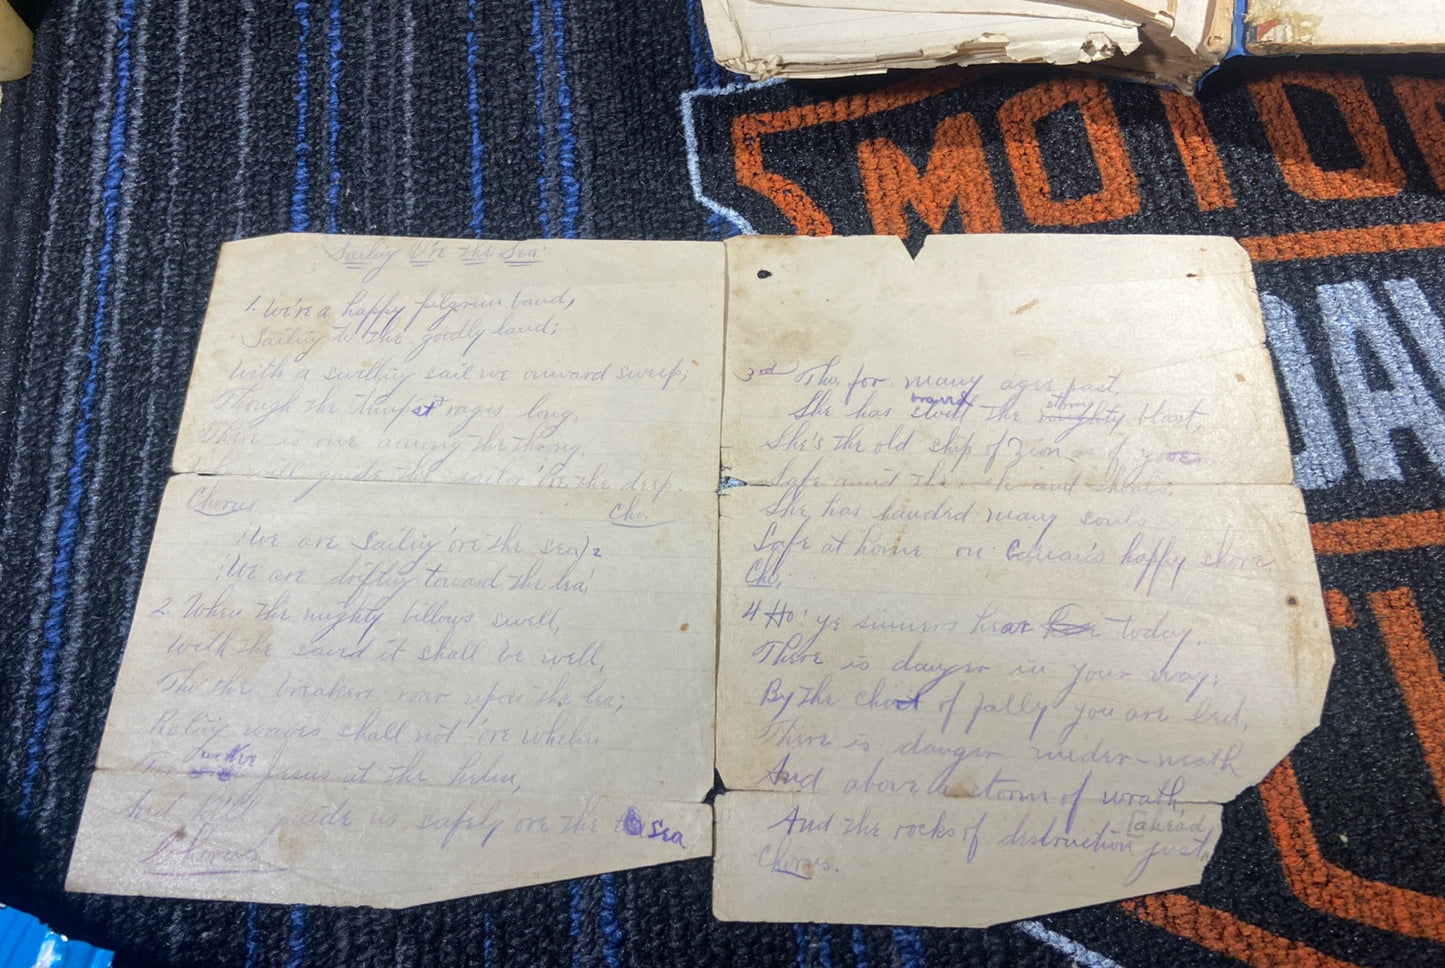 Sailing O're the Sea
1. We're a happy pilgrim band,
Sailing to the goodly land;
With a swelling sail we onward sweep;
Though the tempest rages long,
There is one among the throng,
Who will guide the sailor o're the deep.
Chorus Cho.
We are sailing o're the sea) 2
We are drifting toward the lea
2. When the mighty billows swell,
With the saved it shall be well,
Tho the breakers roar upon the lea;
waves shall not o're whelm
For we've Jesus at the helm,
And He'll guide us safely ore the sea
Chorus
3rd Tho, for many ages past,
She has braved the stormy blast,
She's the old ship of Zion as of yore
Safe amid the rocks and shoals,
She has landed many souls
Safe at home on Canaan's happy shore,
Cho,
4 Ho! ye sinners hear today,
There is danger in your way;
By the chart of folly you are led,
There is danger under-neath
And above a storm of wrath
And the rocks of destruction just [ahead
Chorus.
MOTOR
DA